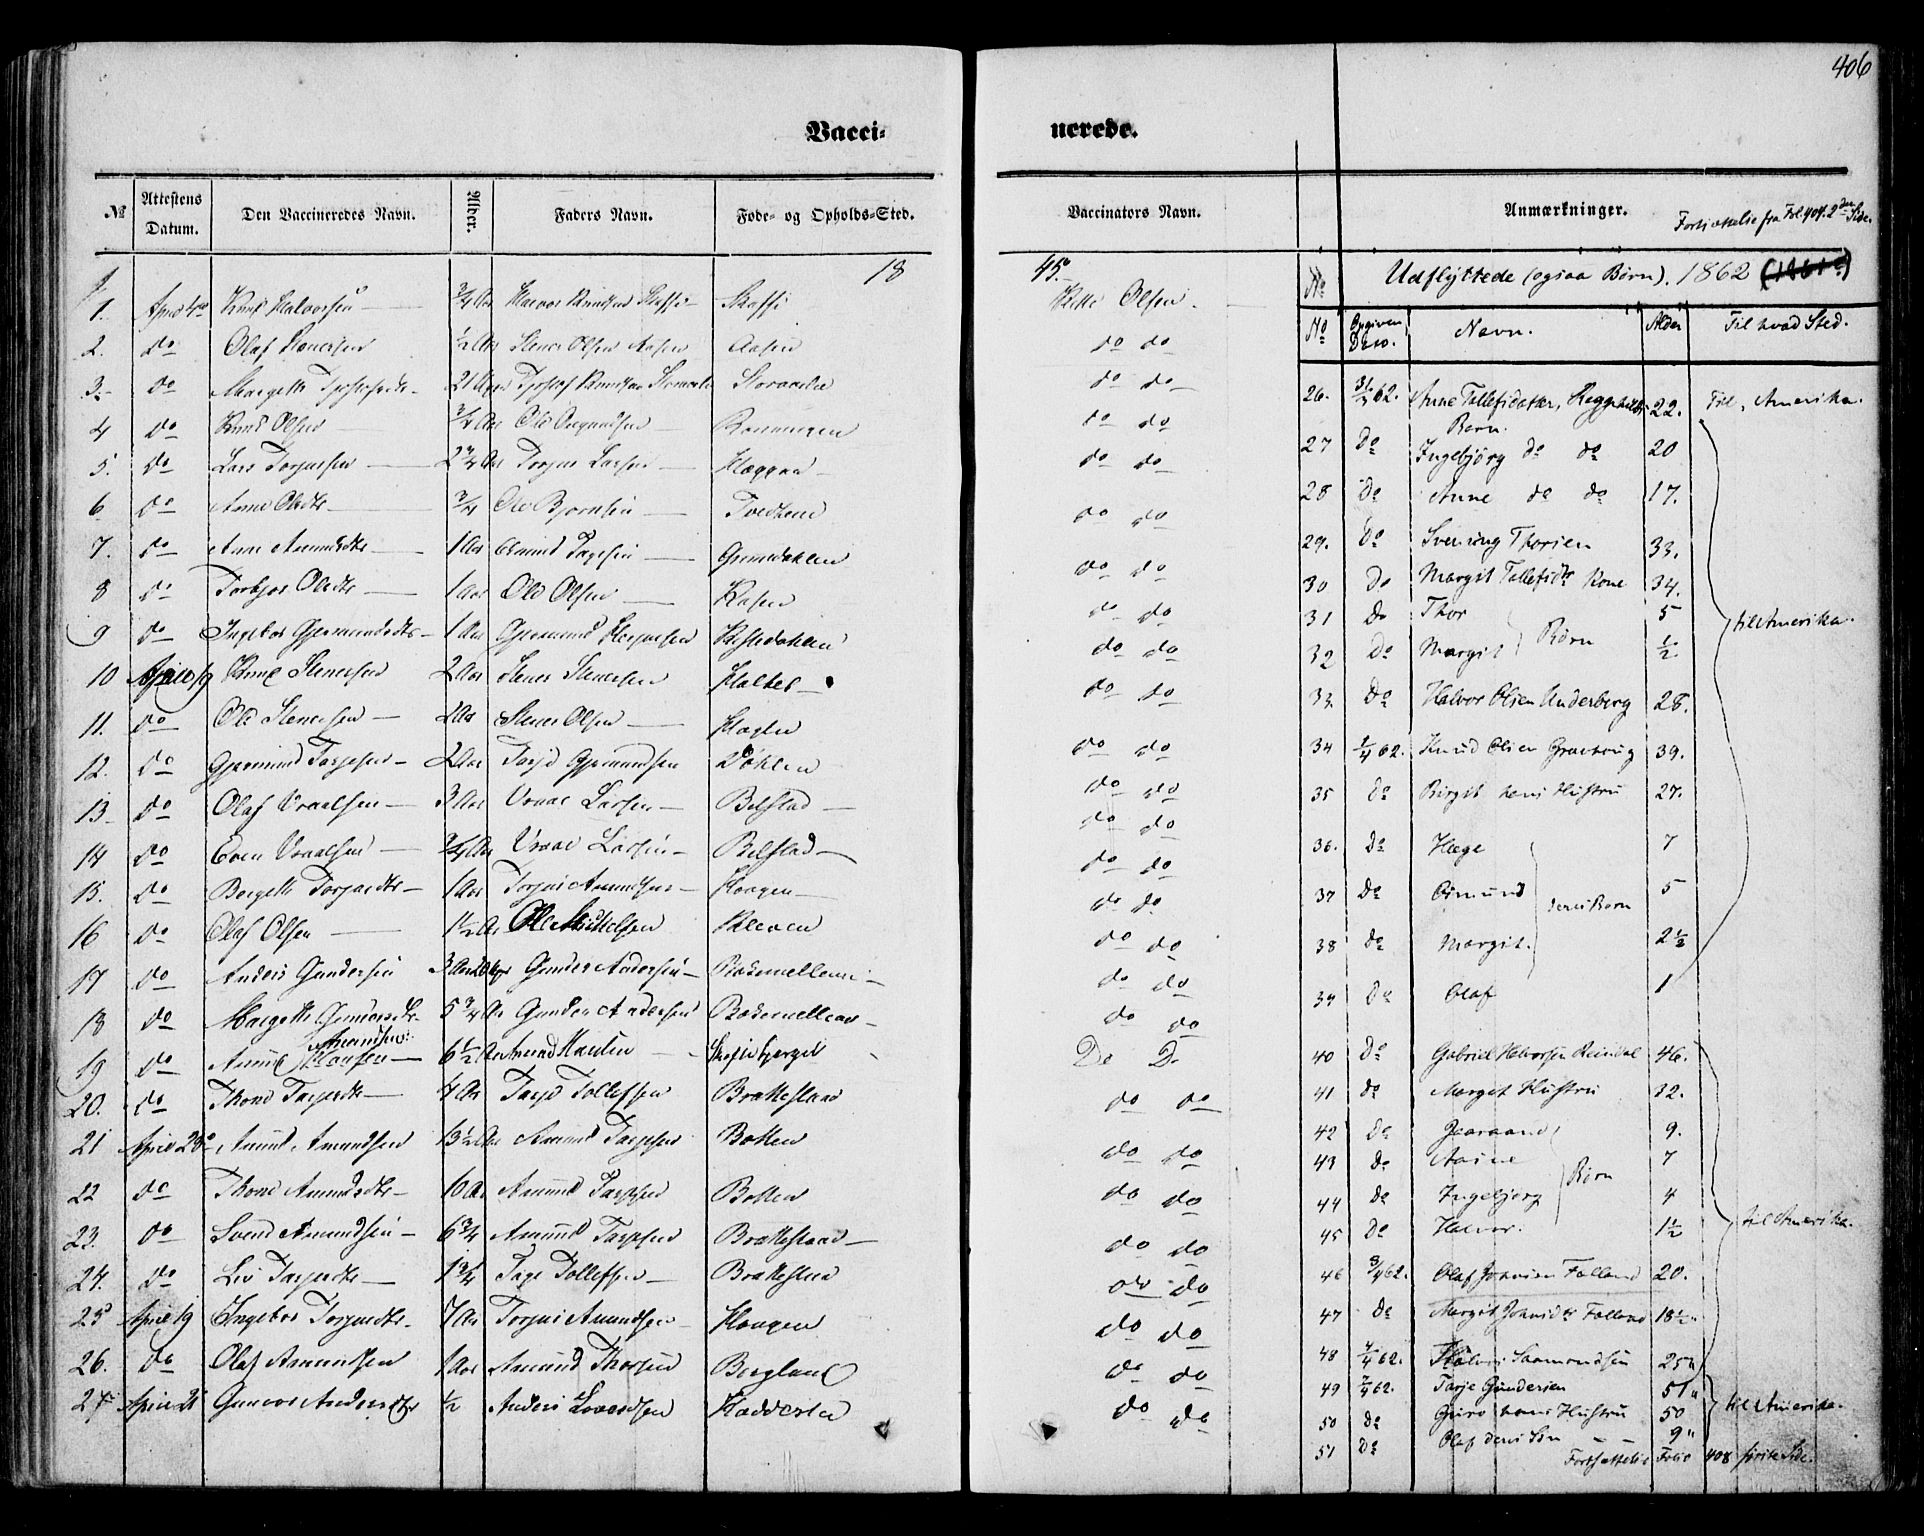 406
Vacci- nerede.
№ Attestens Datum. Den Vaccineredes Navn. Alder. Faders Navn. Føde- og Opholds-Sted. Vaccinators Navn. Anmærkninger.
Fortsættelse fra Fol. 404. 2den Side.
18 45.
1. April 4de Knud Halvorsen 3/4 Aar Halvor Knudsen
2. do Olaf Stenersen 1/2 Aar Stener Olsen Aasen Aasen do do
3. do 21 Aar do do
4 do Knud Olsen 3/4 Aar do do
5. do Lars Torjusen 2 3/4 Aar Torjus Larsen do do
6. do Anne Olsdtr 3/4 Ole Bjørnsen Tvedtene do do
7. do Anne Amundsdtr 1 Aar Amund Tarjesen Grimedahlen do do
8 do Torbjør Olsdtr 1 Aar Ole Olsen Kasen do do
9 do Ingebor Gjermundsdtr 1 Aar Gjermund do do
10 April 19 Knud Stenersen 2 Aar Stener Stenersen do do
11. do Ole Stenersen 2 Aar Stener Olsen do do
12. do Gjermund Tarjesen 2 Aar Tarje Gjermundsen Døhlen do do
13 do Olaf Vraalsen 3 Aar Vraal Larsen Belstad do do
14 do Even Vraalsen 3/4 Aar Vraal Larsen Belstad do do
15. do Bergette Torjusdtr 1 Aar Torjus Amundsen Haagen do do
16 do Olaf Olsen 1 1/2 Aar Ole Mikkelsen Kleven do do
17 do Anders Gundersen 3 Aar Gunder Andersen do do
18 do Margette Gundersdtr 5 3/4 Aar Gunder Andersen do do
19 do Amund Hansen Amundsen 6 1/2 Aar Do Do
20. do Thone Tarjesdtr 4 Aar Tarje Tollefsen Brattestaad do do
21 April 28de Amund Amundsen 13 1/2 Aar Amund Tarjesen Botten do do
22 do Thone Amundsdtr 10 Aar Amund Tarjesen Botten do do
23. do Svend Amundsen 6 3/4 Amund Tarjesen Brattestaad do do
24. do Liv Tarjesdtr 1 3/4 Tarje Tollefsen Brattestaa do do
25 April 19 Ingebor Torjusdtr 7 Aar Torjus Amundsen Haugen do do
26. do Olaf Amundsen 1 Aar Amund Thorsen Bergland do do
27 April 28 Gunvor Andersdtr 1/2 Anders do do
Udflyttede (ogsaa Børn). 1862
No Opgiven Dato. Navn. Alder Til hvad Sted.
26. 31/3 62. Anne Tollefsdatter, 22. Til Amerika.
Børn.
27 do Ingebjørg do do 20
28 do Anne do do 17.
29. do Svenning Thorsen 33.
30 do Margit Tollefsdtr Kone 34.
31 do Thor 5 til Amerika.
32 do Margit Børn 1/2
33 do Halvor Olsen Underberg 28.
34 2/4 62. Knud Olsen 39.
35 do Birgit hans Hustru 27.
36. do Hæge 7
37 do Osmund 5 deres Børn
38 do Margit. 2 1/2
39 do Olaf 1
40 do Gabriel Halvorsen Reindal 46.
41 do Margit Hustru 32.
42 do 9.
43 do Aasne 7
44 do Ingebjørg Børn 4
45 do Halvor. 1 1/2 til Amerika.
46 3/4 62. Olaf Johnsen Folland 20.
47 do Margit Johnsdtr Folland 18 1/2
48 4/4 62. Saamundsen 25
49 7/4 62. Tarje Gundersen 51
50 do Guro hans Hustru 50 til Amerika.
51 do Olaf deres Søn 9
Fortsættelse Folio 408 første Side.